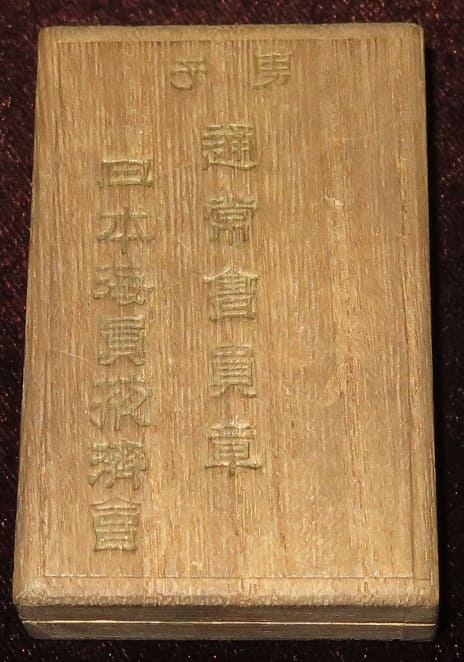 男子
通常會員章
日本海員掖濟會